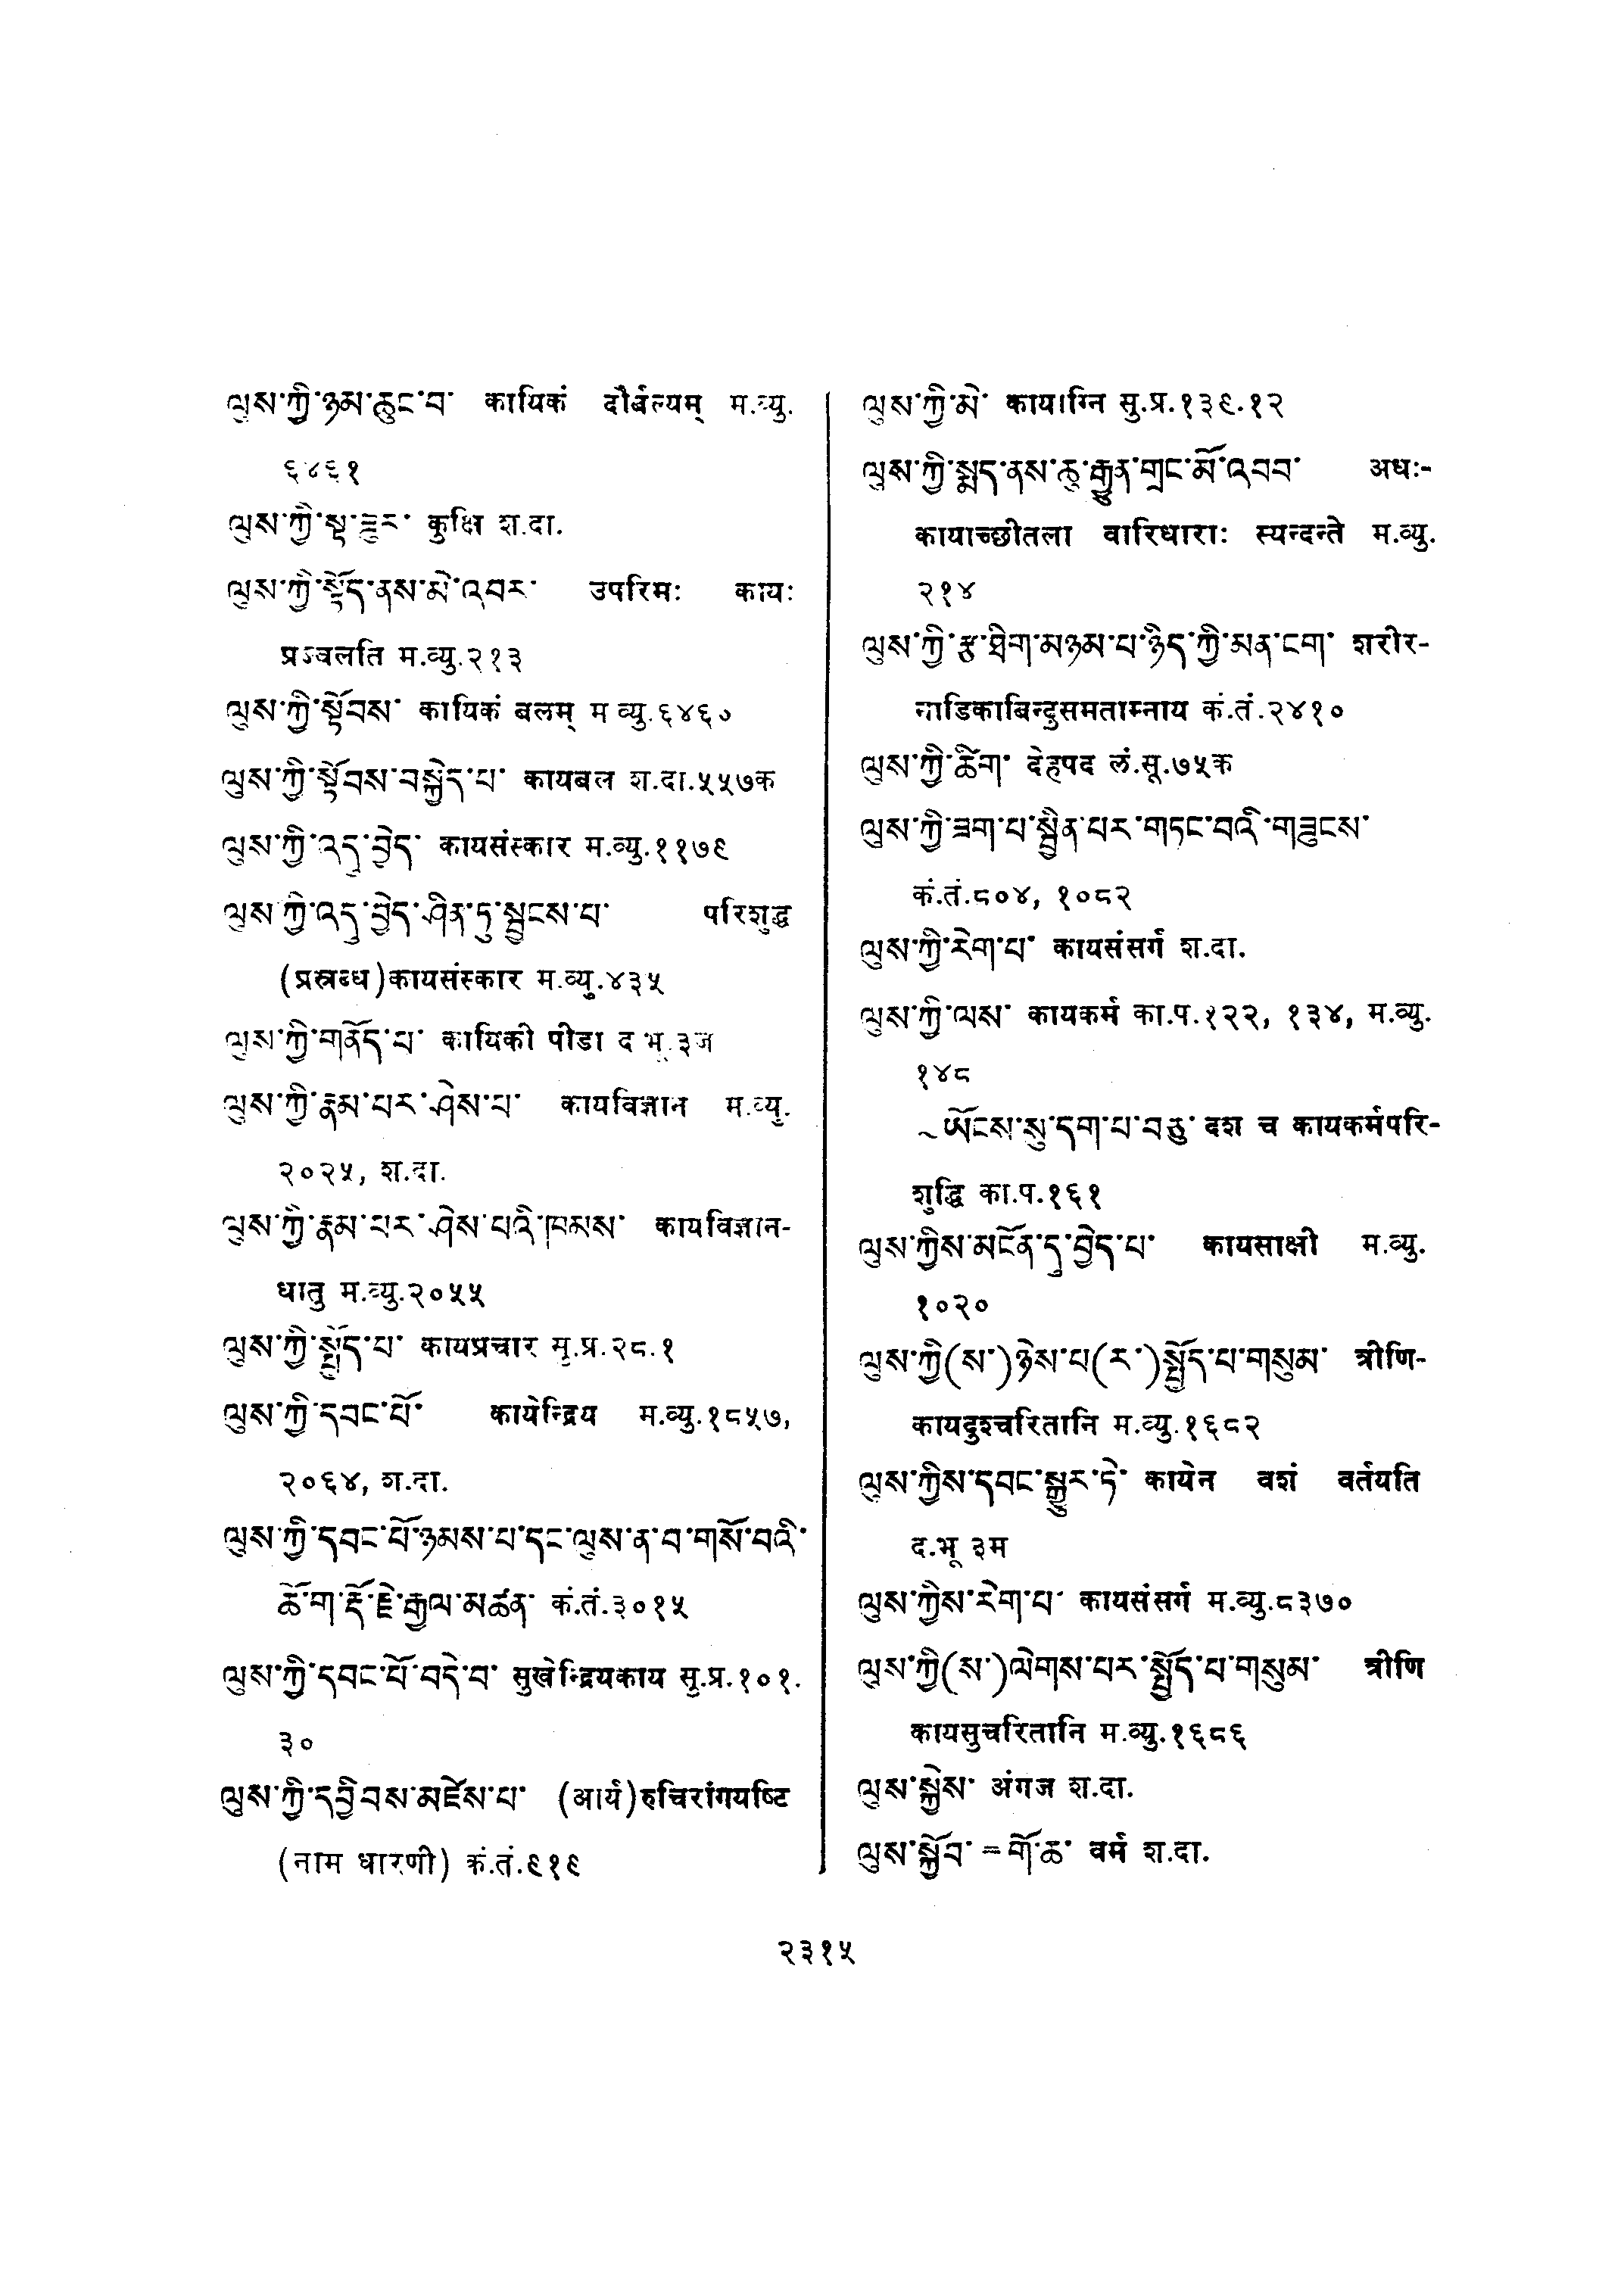 ལུས་ཀྱི་ཉམ་ཆུང་བ་ कायिकं दौर्बल्यम् म.व्यु.
६४६१
ལུས་ཀྱི་སྟ་ཟུར་ कुक्षि श.दा.
ལུས་ཀྱི་སྟོད་ནས་མེ་འབར་ उपरिमः कायः
प्रज्वलति म.व्यु.२१३
ལུས་ཀྱི་སྟོབས་ कायिकं बलम् म व्यु.६४६०
ལུས་ཀྱི་སྟོབས་བསྐྱེད་པ་ कायबल श.दा.५५७क
ལུས་ཀྱི་འདུ་བྱེད་ कायसंस्कार म.व्यु.११७९
ལུས་ཀྱི་འདུ་བྱེད་ཤིན་ཏུ་སྦྱངས་པ་ परिशुद्ध
(प्रस्रब्ध)कायसंस्कार म.व्यु.४३५
ལུས་ཀྱི་གནོད་པ་ कायिकी पीडा द भू.३ज
ལུས་ཀྱི་རྣམ་པར་ཤེས་པ་ कायविज्ञान म.व्यु.
२०२५, श.दा.
ལུས་ཀྱི་རྣམ་པར་ཤེས་པའི་ཁམས་ कायविज्ञान-
धातु म.व्यु.२०५५
ལུས་ཀྱི་སྤྱོད་པ་ कायप्रचार सु.प्र.२८.१
ལུས་ཀྱི་དབང་པོ་ कायेन्द्रिय म.व्यु.१८५७,
२०६४, श.दा.
ལུས་ཀྱི་དབང་པོ་ཉམས་པ་དང་ལུས་ན་བ་གསོ་བའི་
ཆོ་ག་རྡོ་རྗེ་རྒྱལ་མཚན་ कं.तं.३०१५
ལུས་ཀྱི་དབང་པོ་བདེ་བ་ सुखेन्द्रियकाय सु.प्र.१०१.
३०
ལུས་ཀྱི་དབྱིབས་མཛེས་པ་ (आर्य)रुचिरांगयष्टि
(नाम धारणी) कं.तं.९१९
ལུས་ཀྱི་མེ་ कायाग्नि सु.प्र.१३९.१२
ལུས་ཀྱི་སྨད་ནས་ཆུ་རྒྱུན་གྲང་མོ་འབབ་ अधः-
कायाच्छीतला वारिधाराः स्यन्दन्ते म.व्यु.
२१४
ལུས་ཀྱི་རྩ་ཐིག་མཉམ་པ་ཉིད་ཀྱི་མན་ངག་ शरीर-
नाडिकाबिन्दुसमताम्नाय कं.तं.२४१०
ལུས་ཀྱི་ཚིག་ देहपद लं.सू.७५क
ལུས་ཀྱི་ཟག་པ་སྦྱིན་པར་གཏང་བའི་གཟུངས་
कं.तं.८०४, १०८२
ལུས་ཀྱི་རེག་པ་ कायसंसर्ग श.दा.
ལུས་ཀྱི་ལས་ कायकर्म का.प.१२२, १३४, म.व्यु.
१४८
~ཡོངས་སུ་དག་པ་བཅུ་ दश च कायकर्मपरि-
शुद्धि का.प.१६१
ལུས་ཀྱིས་མངོན་དུ་བྱེད་པ་ कायसाक्षी म.व्यु.
१०२०
ལུས་ཀྱི(ས་)ཉེས་པ(ར་)སྤྱོད་པ་གསུམ་ त्रीणि-
कायदुश्चरितानि म.व्यु.१६८२
ལུས་ཀྱིས་དབང་སྒྱུར་ཏེ་ कायेन वशं वर्तयति
द.भू ३म
ལུས་ཀྱིས་རེག་པ་ कायसंसर्ग म.व्यु.८३७०
ལུས་ཀྱི(ས་)ལེགས་པར་སྤྱོད་པ་གསུམ་ त्रीणि
कायसुचरितानि म.व्यु.१६८६
ལུས་སྐྱེས་ अंगज श.दा.
ལུས་སྐྱོབ་ =གོ་ཆ་ वर्म श.दा.
२३१५